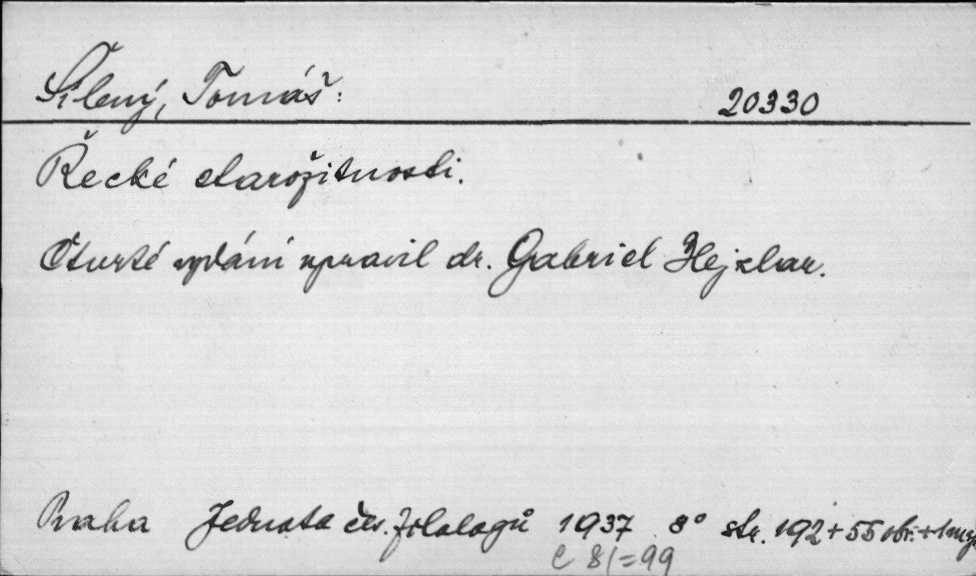 Šílený, Tomáš: 20330
Řecké starožitnosti.
Čtvrté vydání upravil dr. Gabriel Hejzlar.
Praha Jednota čes. filologů 1937 8° str. 192 + 55 obr. + 1 map
C 81=99